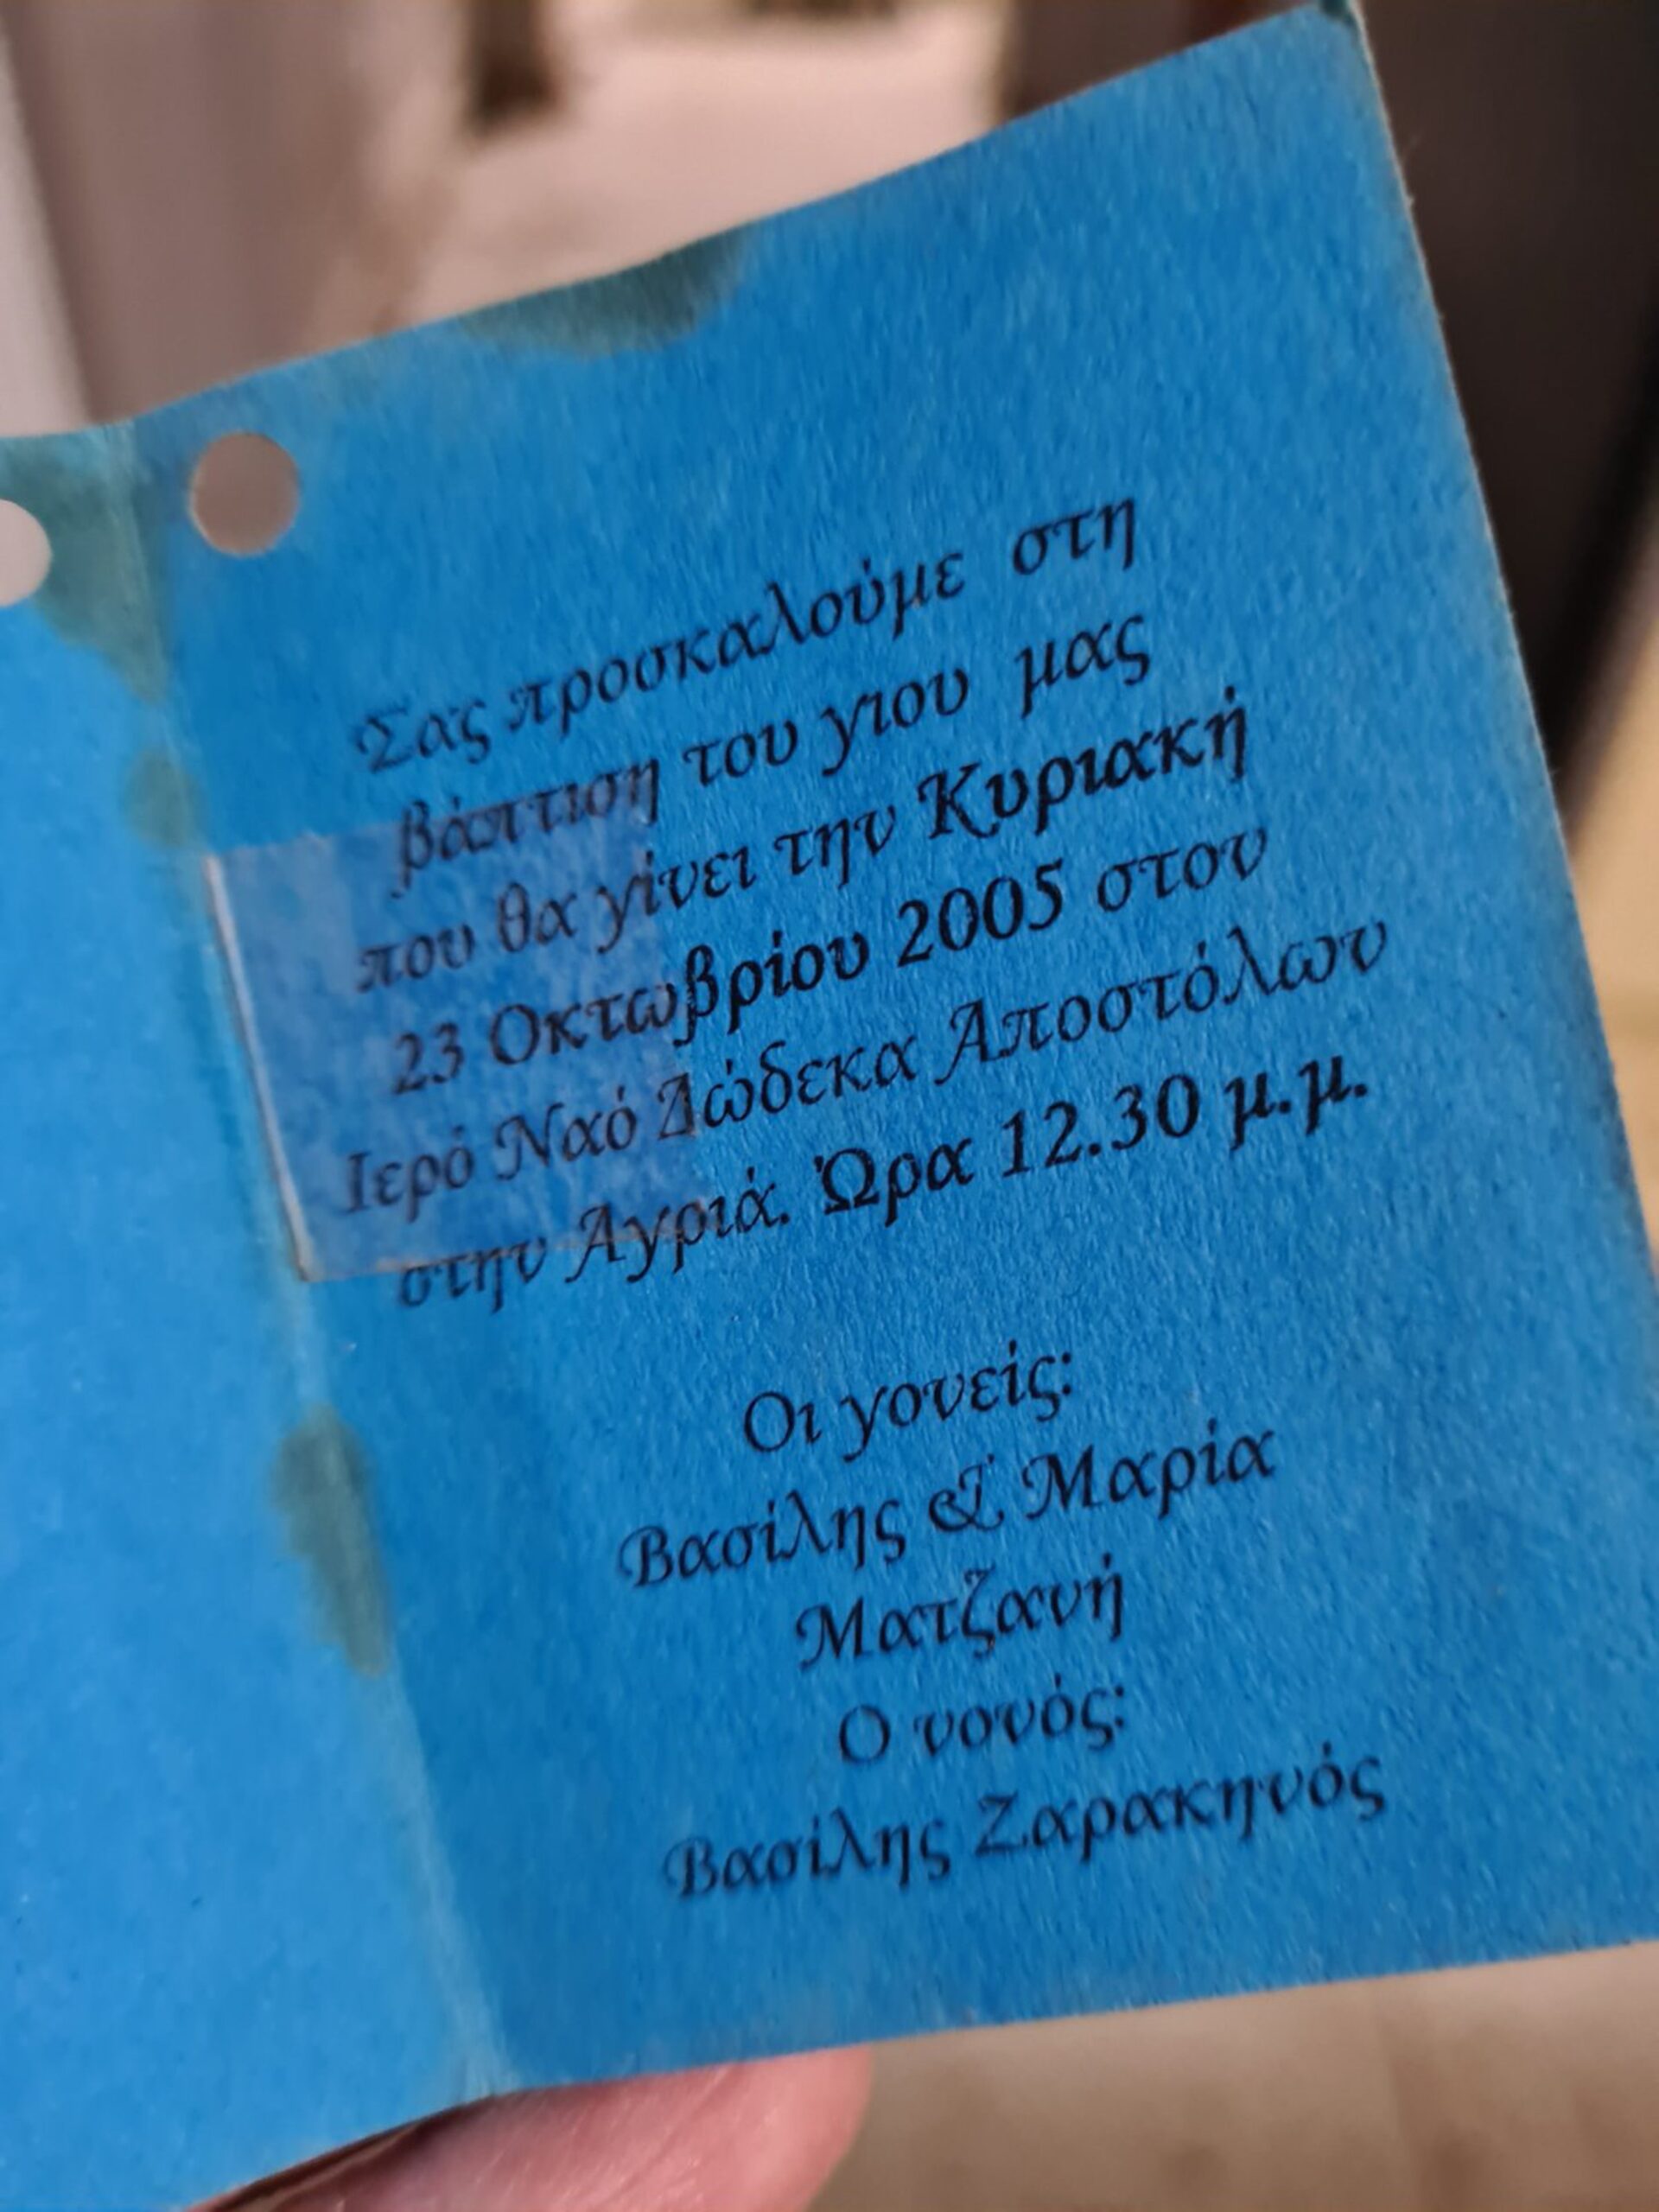 Σας προσκαλούμε στη
βάπτιση του γιου μας
που θα γίνει την Κυριακή
23 Οκτωβρίου 2005 στον
Ιερό Ναό Δώδεκα Αποστόλων
στην Αγριά. Ώρα 12.30 μ.μ.
Οι γονείς:
Βασίλης & Μαρία
Ματζανή
Ο νονός:
Βασίλης Ζαρακηνός